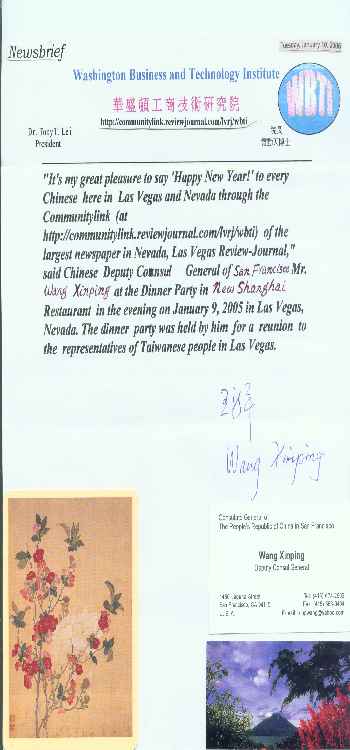 Newsbrief
Tuesday, January 10, 2006
Washington Business and Technology Institute
華盛頓工商技術研究院
http://communitylink.reviewjournal.com/lvrj/wbti
WBTI
Dr. Tony T. Lei
President
院長
"It's my great pleasure to say 'Happy New Year!' to every
Chinese here in Las Vegas and Nevada through the
Communitylink (at
http://communitylink.reviewjournal.com/lvrj/wbti) of the
largest newspaper in Nevada, Las Vegas Review-Journal,"
said Chinese Deputy Counsul General of San Francisco Mr.
Wang Xinping at the Dinner Party in New Shanghai
Restaurant in the evening on January 9, 2005 in Las Vegas,
Nevada. The dinner party was held by him for a reunion to
the representatives of Taiwanese people in Las Vegas.
Wang Xinping
Consulate General of
The People's Republic of China in San Francisco
Wang Xinping
Deputy Consul General
1450 Laguna Street
San Francisco, CA
U.S.A.
Tel: (415)
Fax: (415)